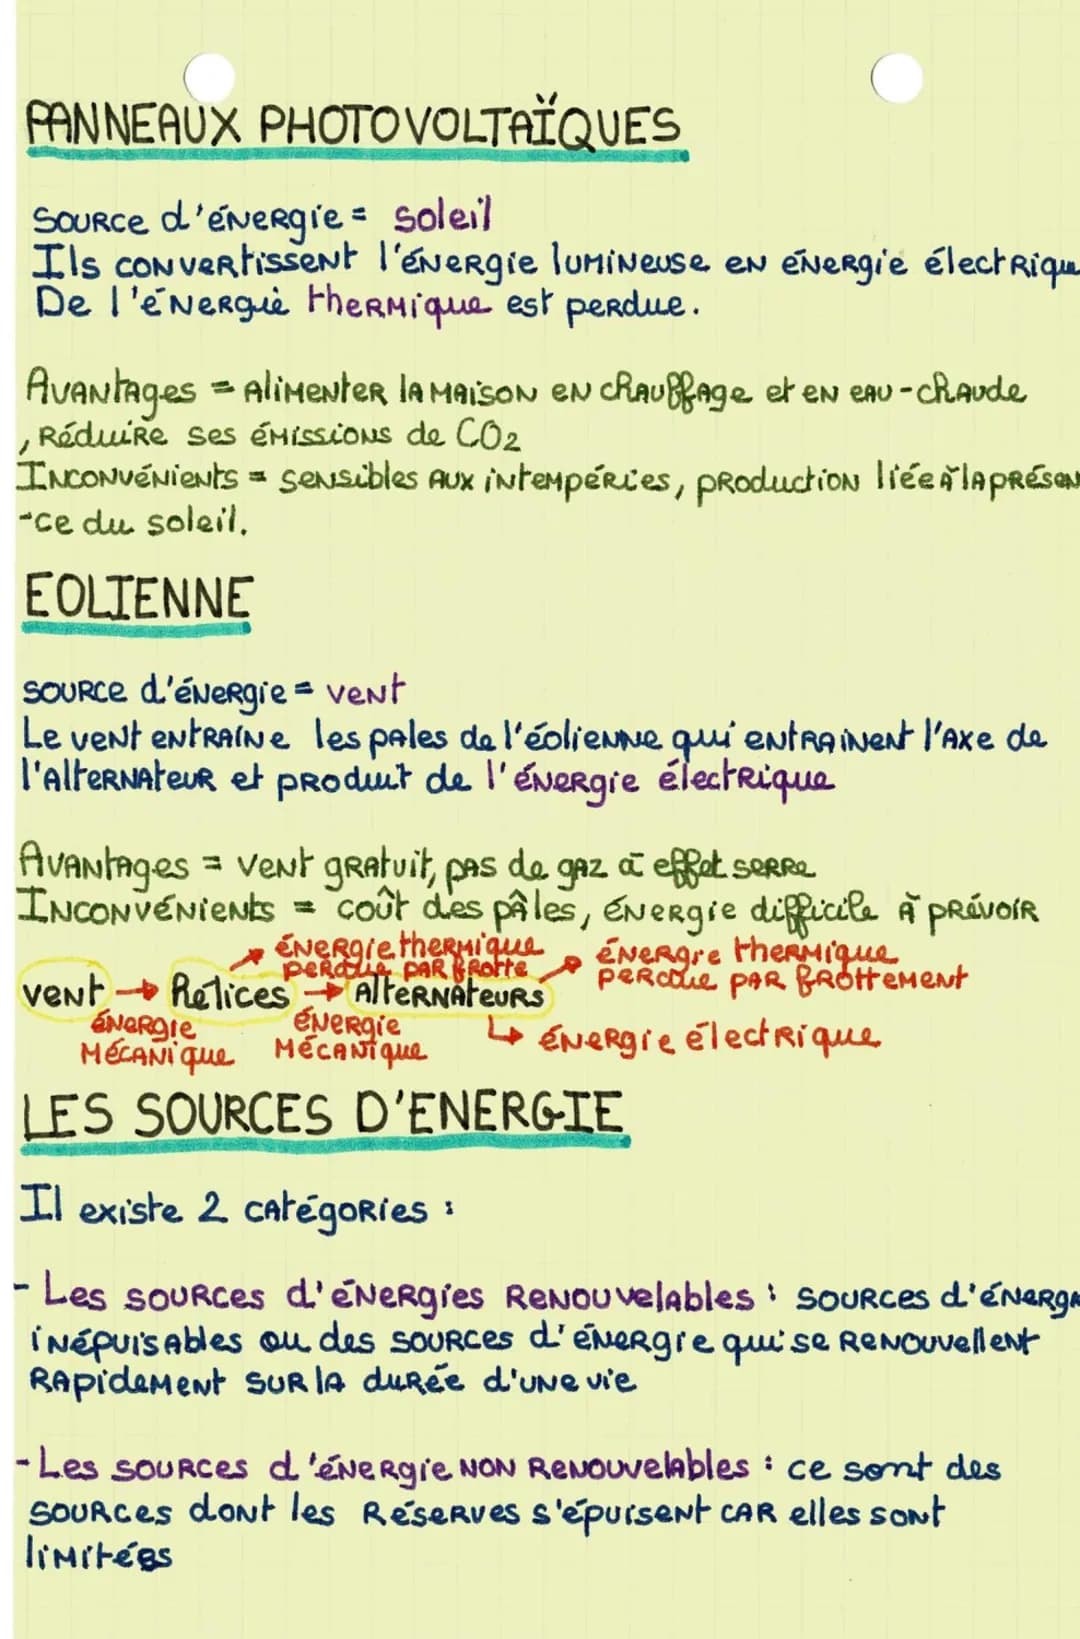 PANNEAUX PHOTOVOLTAÏQUES
Source d'énergie = soleil
Ils convertissent l'énergie lumineuse en énergie électrique
De l'énergie thermique est perdue.
Avantages = Alimenter la maison en chauffage et en eau-chaude
, Réduire ses émissions de CO2
Inconvénients = sensibles aux intempéries, production liée à la présen
-ce du soleil.
EOLIENNE
source d'énergie = vent
Le vent entraîne les pales de l'éolienne qui entrainent l'axe de
l'alternateur et produit de l'énergie électrique
Avantages = vent gratuit, pas de gaz à effet serre
Inconvénients = coût des pâles, énergie difficile à prévoir
énergie thermique énergie thermique
perdue par frotte perdue par frottement
vent → Hélices → Alternateurs
énergie énergie ↳ énergie électrique
mécanique mécanique
LES SOURCES D'ENERGIE
Il existe 2 catégories :
- Les sources d'énergies renouvelables : sources d'énergi
inépuisables ou des sources d'énergie qui se renouvellent
rapidement sur la durée d'une vie
- Les sources d'énergie non renouvelables : ce sont des
sources dont les réserves s'épuisent car elles sont
limitées